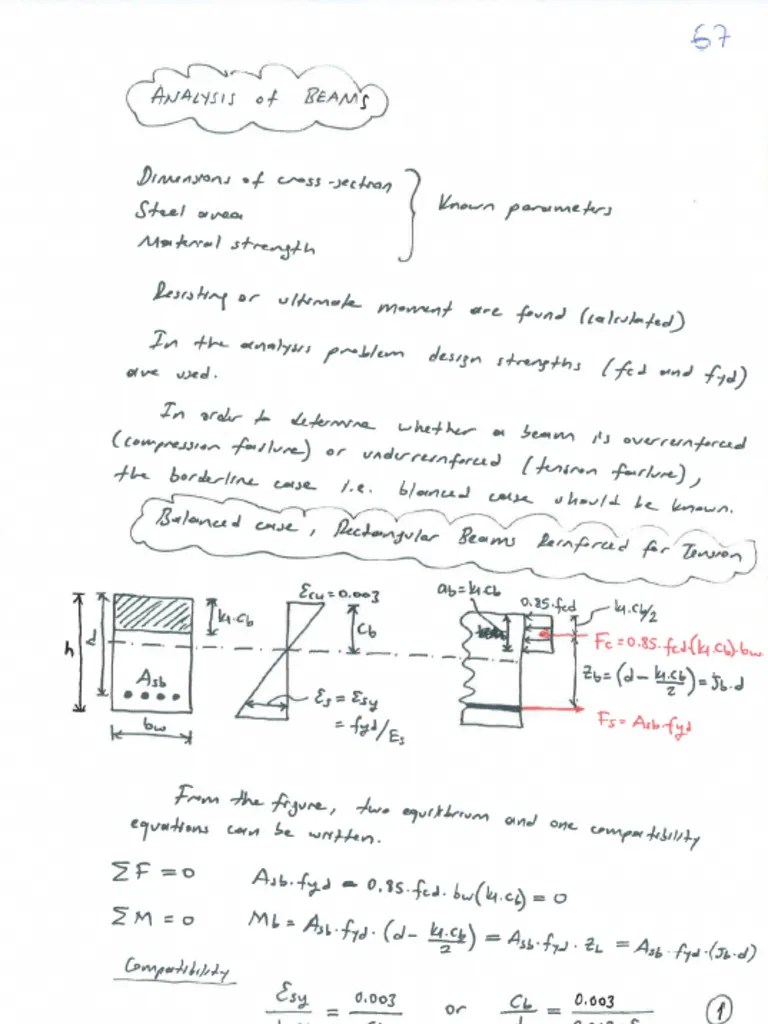 67
ANALYSIS of BEAMS
Dimensions of cross-section
Steel area
Material strength
Known parameters
Resisting or ultimate moment are found (calculated)
In the analysis problem design strengths (fcd and fyd)
are used.
In order to determine whether a beam is overreinforced
(compression failure) or underreinforced (tension failure),
the borderline case i.e. blanced case should be known.
Balanced case, Rectangular Beams Reinforced for Tension
h
d
k1.cb
Asb
bw
Ecu = 0.003
cb
Es = Esy
= fyd/Es
ab = k1.cb
0.85.fcd
k1.cb/2
Fc = 0.85.fcd.(k1.cb).bw
Zb = (d - k1.cb/2) = jb.d
Fs = Asb.fyd
From the figure, two equilibrium and one compatibility
equations can be written.
ΣF = 0 Asb.fyd - 0.85.fcd.bw(k1.cb) = 0
ΣM = 0 Mb = Asb.fyd.(d - k1.cb/2) = Asb.fyd.Zb = Asb.fyd.(jb.d)
Compatibility
Esy = 0.003 or cb = 0.003 1